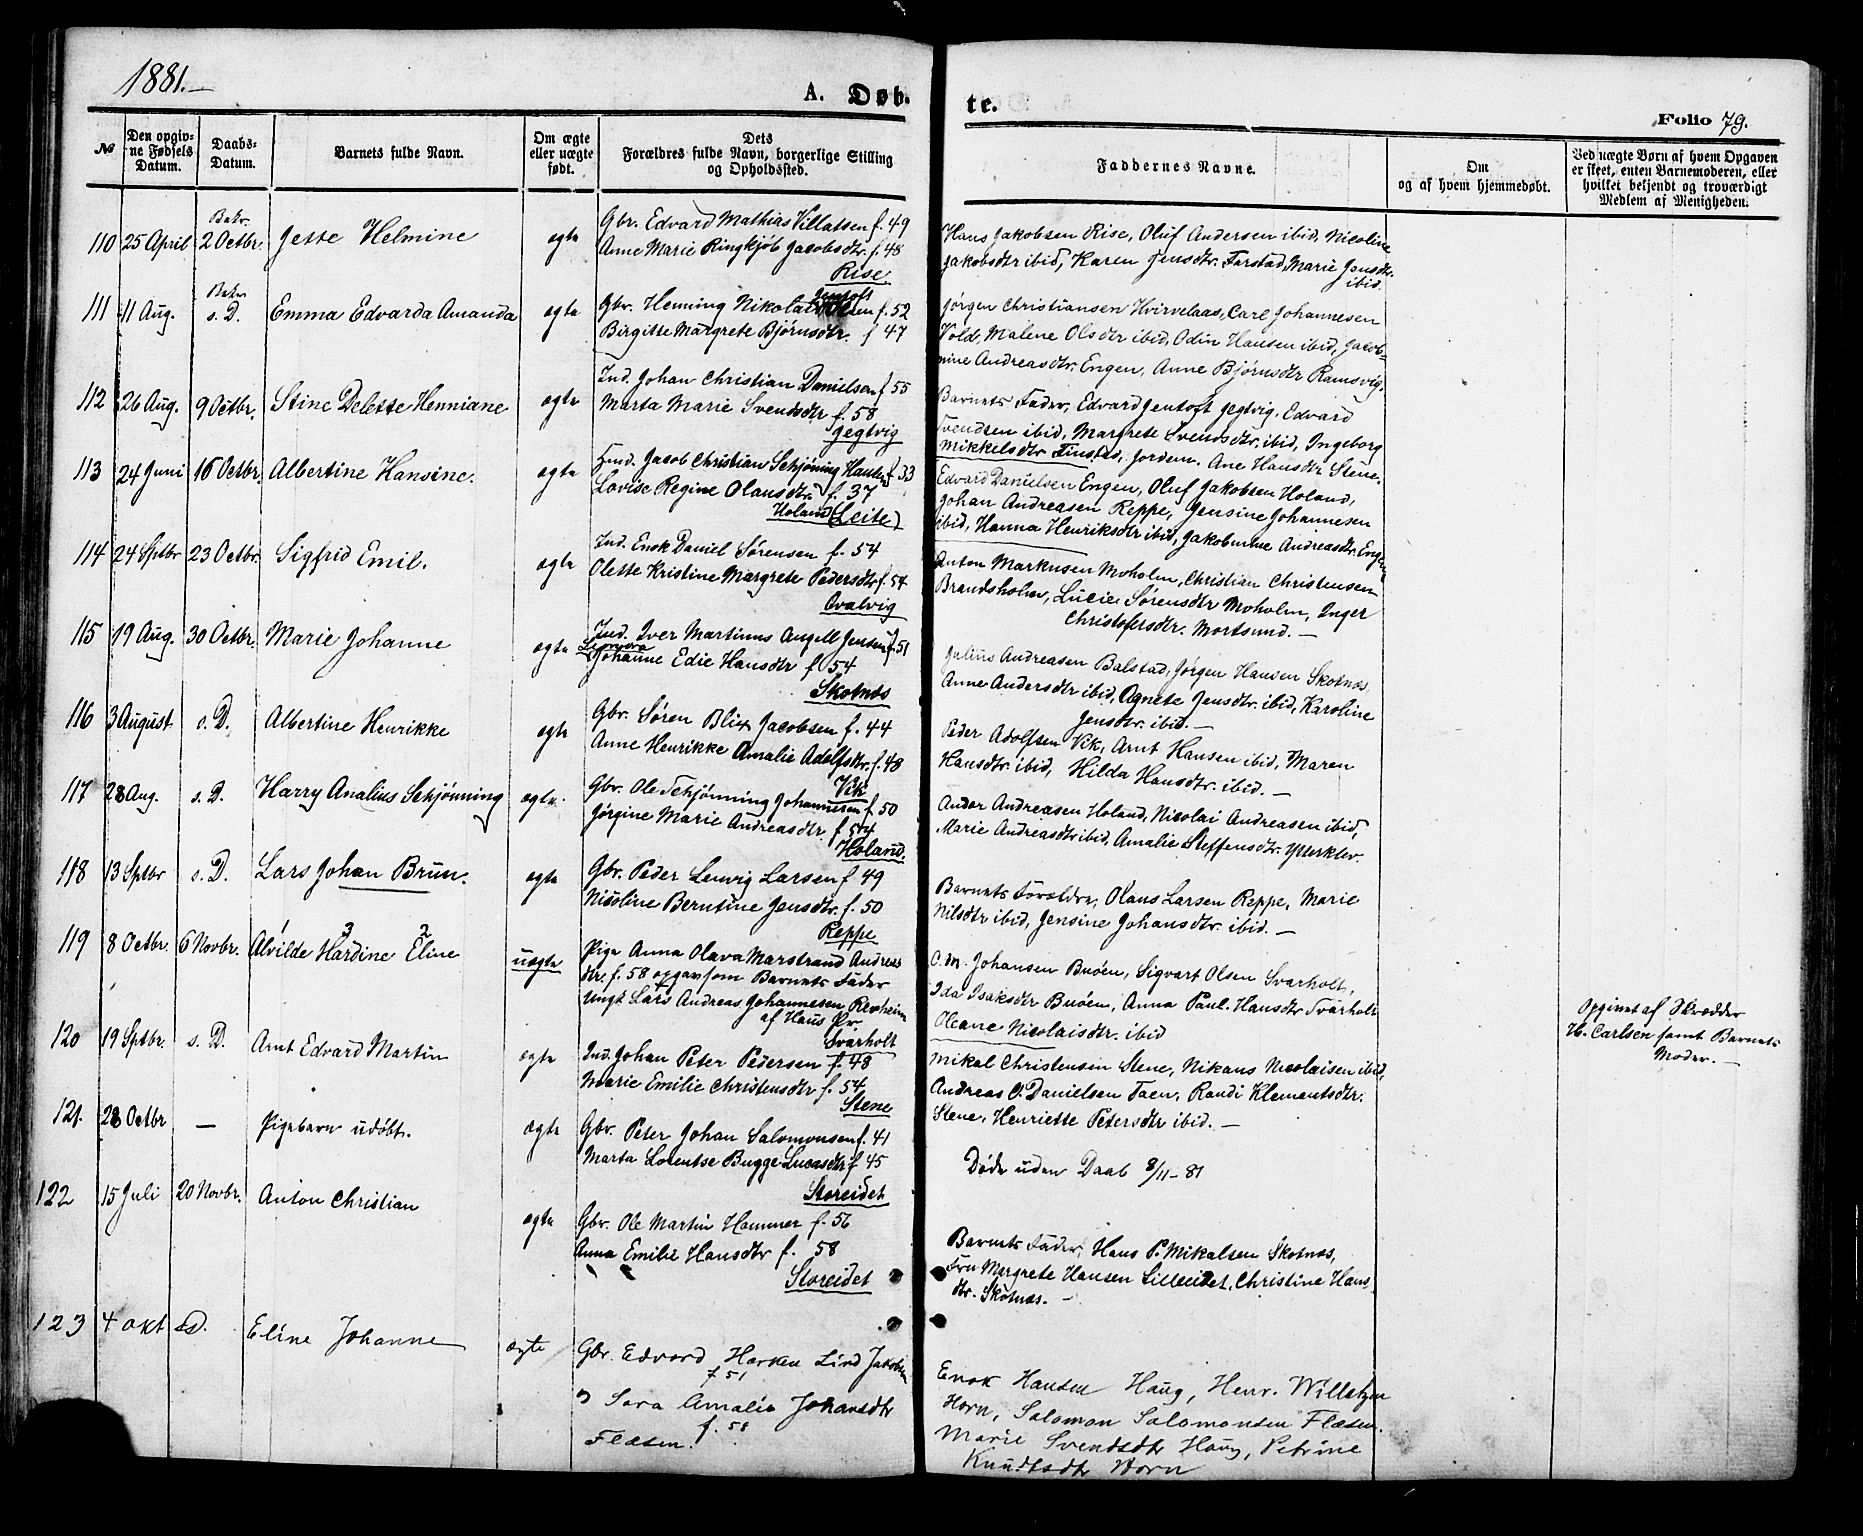 1881.—
A. Døb-
te.
Folio 79.
№
Den opgiv-
ne Fødsels
Datum.
Daabs-
Datum.
Barnets fulde Navn.
Om ægte
eller uægte
født.
Dets
Forældres fulde Navn, borgerlige Stilling
og Opholdssted.
Faddernes Navne.
Om
og af hvem hjemmedøbt.
Ved uægte Børn af hvem Opgaven
er skeet, enten Barnemoderen, eller
hvilket bekjendt og troværdigt
Medlem af Menigheden.
110 25 April 2 Octbr. Jette Helmine ægte
Gbr. Edvard Mathias Villatsen f. 49
Anne Marie Ringkjøb Jacobsdtr. f. 48
Rise
Hans Jakobsen Rise, Oluf Andersen ibid, Nicoline
Jakobsdtr ibid, Karen Jensdtr. Farstad, Marie Jensdtr.
ibid.
111 11 Aug. s. D. Emma Edvarda Amanda ægte
Gbr. Henning Nikolai Olsen f. 52
Birgitte Margrete Bjørnsdtr. f 47
Jørgen Christiansen Hvirvelaas, Carl Johannesen
Vold, Malene Olsdtr ibid, Odin Hansen ibid, Jacob-
mine Andreasdtr. Engen, Anne Bjørnsdtr Ramsvig.
112 26 Aug. 9 Octbr. Stine Delette Henniane ægte
Ind. Johan Christian Danielsen f 55
Marta Marie Svendsdtr f. 58
Jegtvig
Barnets Fader, Edvard Jentoft Jegtvig, Edvard
Svendsen ibid, Margrete Svendsdtr. ibid, Ingeborg
Mikkelsdtr Finstad, Jordem. Ane Hansdtr Stene.
113 24 Juni 16 Octbr. Albertine Hansine. ægte
Ind. Jacob Christian Schjøning Hansen f. 33
Lovise Regine Olausdtr. f. 37
Holand (Leite)
Edvard Danielsen Engen, Oluf Jakobsen Holand,
Johan Andreasen Reppe, Jensine Johannesen
ibid, Hanna Henriksdtr ibid, Jakobmine Andreasdtr. Engen
114 24 Sptbr 23 Octbr. Sigfrid Emil. ægte
Ind. Enok Daniel Sørensen f. 54
Olette Kristine Margrete Pedersdtr f. 54
Qvalvig
Anton Markusen Moholm, Christian Christensen
Brandsholm, Lucie Sørensdtr Moholm, Inger
Christofersdtr. Mortsund.—
115 19 Aug. 30 Octbr. Marie Johanne ægte
Ind. Iver Martinus Angell Jensen f. 51
Johanne Edie Hansdtr f. 54
Skotnæs
Julius Andreasen Balstad, Jørgen Hansen Skotnæs,
Anne Andersdtr ibid, Agnete Jensdtr. ibid, Karoline
Jensdtr. ibid.—
116 3 August s. D. Albertine Henrikke ægte
Gbr. Søren Blix Jacobsen f. 44
Anne Henrikke Amalie Adolfsdtr. f. 48
Vik
Peder Adolfsen Vik, Arnt Hansen ibid, Maren
Hansdtr. ibid, Hilda Hansdtr. ibid.—
117 28 Aug. s. D. Harry Analius Schjønning ægte.
Gbr. Ole Schjønning Johannesen f. 50
Jørgine Marie Andreasdtr. f. 54
Holand.
Andor Andreasen Holand, Nicolai Andreasen ibid,
Marie Andreasdtr ibid, Amalie Steffensdtr. Ytterklev.
118 13 Sptbr s. D. Lars Johan Brun. ægte
Gbr. Peder Lenvig Larsen f 49
Nicoline Berntine Jensdtr. f. 50
Reppe
Barnets Forældre, Olaus Larsen Reppe, Marie
Nilsdtr ibid, Jensine Johansdtr. ibid.—
119 8 Octbr. 6 Novbr. Alvilde Hardine Eline uægte
3 2
Pige Anna Olava Marstrand Andreas
dtr. f. 58 opgav som Barnets Fader
Ungk. Lars Andreas Johannesen Revheim
af Haus Pr.
Svarholt
O. M. Johansen Buøen, Sigvart Olsen Svarholt,
Ida Isaksdtr Buøen, Anna Paul. Hansdtr Svarholt
Oleane Nicolaisdtr. ibid
Opgivet af Skrædder
H. Carlsen samt Barnets
Moder.—
120 19 Sptbr. s. D. Arnt Edvard Martin ægte
Ind. Johan Peter Petersen f. 48
Marie Emilie Christensdtr f. 54
Stene
Mikal Christensen Stene, Nikans Nicolaisen ibid,
Andreas O. Danielsen Taen, Randi Klementsdtr.
Stene, Henriette Petersdtr ibid.—
121. 28 Octbr — Pigebarn udøbt. ægte
Gbr. Peter Johan Salomonsen f. 41
Marta Lorentse Bugge Lucasdtr f 45
Storeidet
Døde uden Daab 8/11-81
122 15 Juli 20 Novbr. Anton Christian ægte
Gbr. Ole Martin Hammer f. 56
Anna Emilie Hansdtr f. 58
Storeidet
Barnets Fader, Hans P. Mikalsen Skotnæs,
Fru Margrete Hansen Lilleeidet, Christine Hans-
dtr. Skotnæs.—
123 4 okt s. D. Eline Johanne ægte
Gbr. Edvard Harken Lind Jakobsen
f 51
Sara Amalie Johansdtr
f. 58
Flæsen.
Enok Hansen Haug, Henr. Willatzen
Horn, Salomon Salomonsen Flæsen.
Marie Svendsdtr Haug, Petrine
Knudtsdtr Horn